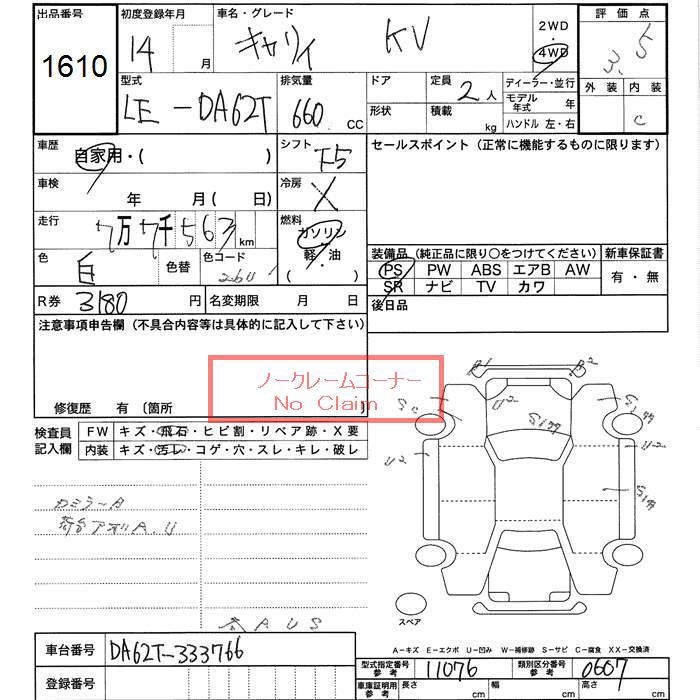 出品番号
1610
初度登録年月
14 月
車名・グレード
キャリィ KV
2WD
4WD
評価点
3.5
外装 内装
C
型式
LE-DA62T
排気量
660 CC
ドア
形状
定員 2人
積載 kg
ディーラー・並行
モデル年式 年
ハンドル 左・右
車歴
自家用・( )
シフト
F5
セールスポイント (正常に機能するものに限ります)
車検
年 月(日)
冷房
X
走行
7万7千563 km
燃料
ガソリン
軽・油
( )
色
白
色替
色コード
26U
装備品 (純正品に限り○をつけてください)
新車保証書
PS PW ABS エアB AW
SR ナビ TV カワ
有・無
R券 3180 円
名変期限 月 日
後日品
注意事項申告欄 (不具合内容等は具体的に記入して下さい)
ノークレームコーナー
No Claim
修復歴 有 〔箇所 〕
検査員記入欄
FW キズ・飛石・ヒビ割・リペア跡・X要
内装 キズ・汚レ・コゲ・穴・スレ・キレ・破レ
B1 B2
U2
S177
S177
U2 U2
S177
カミラーA
荷台アオリA.U
AUS
スペア
A-キズ E-エクボ U-凹み W-補修跡 S-サビ C-腐食 XX-交換済
車台番号 DA62T-333766
登録番号
型式指定番号 参考 11076
類別区分番号 参考 0607
車庫証明用 参考 長さ cm 幅 cm 高さ cm